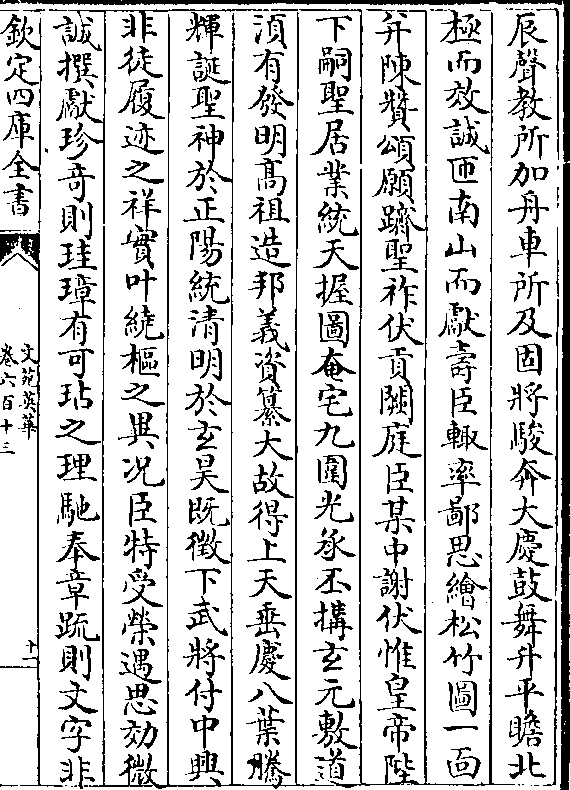 辰聲教所加舟車所及固將駿奔大慶鼓舞升平瞻北
極而效誠匝南山而獻壽臣輙率鄙思繪松竹圖一面
并陳贊頌願躋聖祚伏貢闕庭臣某中謝伏惟皇帝陛
下嗣聖居業統天握圖奄宅九圍光承丕搆玄元敷道
湏有發明髙祖造邦義資纂大故得上天垂慶八葉騰
輝誕聖神於正陽統清明於玄昊既徴下武將付中興
非徒履迹之祥實叶繞樞之異况臣特受榮遇思効微
誠撰獻珍奇則珪璋有可玷之理馳奉章䟽則文字非
欽定四庫全書
文苑英華
卷六百十三
十一